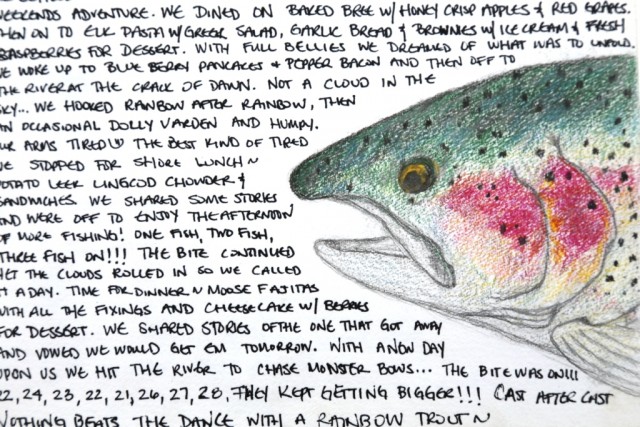 WEEKENDS ADVENTURE. WE DINED ON BAKED BREE W/ HONEY CRISP APPLES & RED GRAPES.
THEN ON TO ELK PASTA W/ GREEK SALAD, GARLIC BREAD & BROWNIES W/ ICE CREAM & FRESH
RASPBERRIES FOR DESSERT. WITH FULL BELLIES WE DREAMED OF WHAT WAS TO UNFOLD.
WE WOKE UP TO BLUE BERRY PANCAKES & PEPPER BACON AND THEN OFF TO
THE RIVER AT THE CRACK OF DAWN. NOT A CLOUD IN THE
SKY... WE HOOKED RAINBOW AFTER RAINBOW, THEN
AN OCCASIONAL DOLLY VARDEN AND HUMPY.
OUR ARMS TIRED THE BEST KIND OF TIRED
WE STOPPED FOR SHORE LUNCH ~
POTATO LEEK LINGCOD CHOWDER &
SANDWICHES. WE SHARED SOME STORIES
AND WERE OFF TO ENJOY THE AFTERNOON
OF MORE FISHING! ONE FISH, TWO FISH,
THREE FISH ON!!! THE BITE CONTINUED
YET THE CLOUDS ROLLED IN SO WE CALLED
IT A DAY. TIME FOR DINNER ~ MOOSE FAJITAS
WITH ALL THE FIXINGS AND CHEESECAKE W/ BERRIES
FOR DESSERT. WE SHARED STORIES OF THE ONE THAT GOT AWAY
AND VOWED WE WOULD GET EM TOMORROW. WITH A NEW DAY
UPON US WE HIT THE RIVER TO CHASE MONSTER BOWS... THE BITE WAS ON!!!
22, 24, 23, 22, 21, 26, 27, 28, THEY KEPT GETTING BIGGER!!! CAST AFTER CAST
NOTHING BEATS THE DANCE WITH A RAINBOW TROUT ~